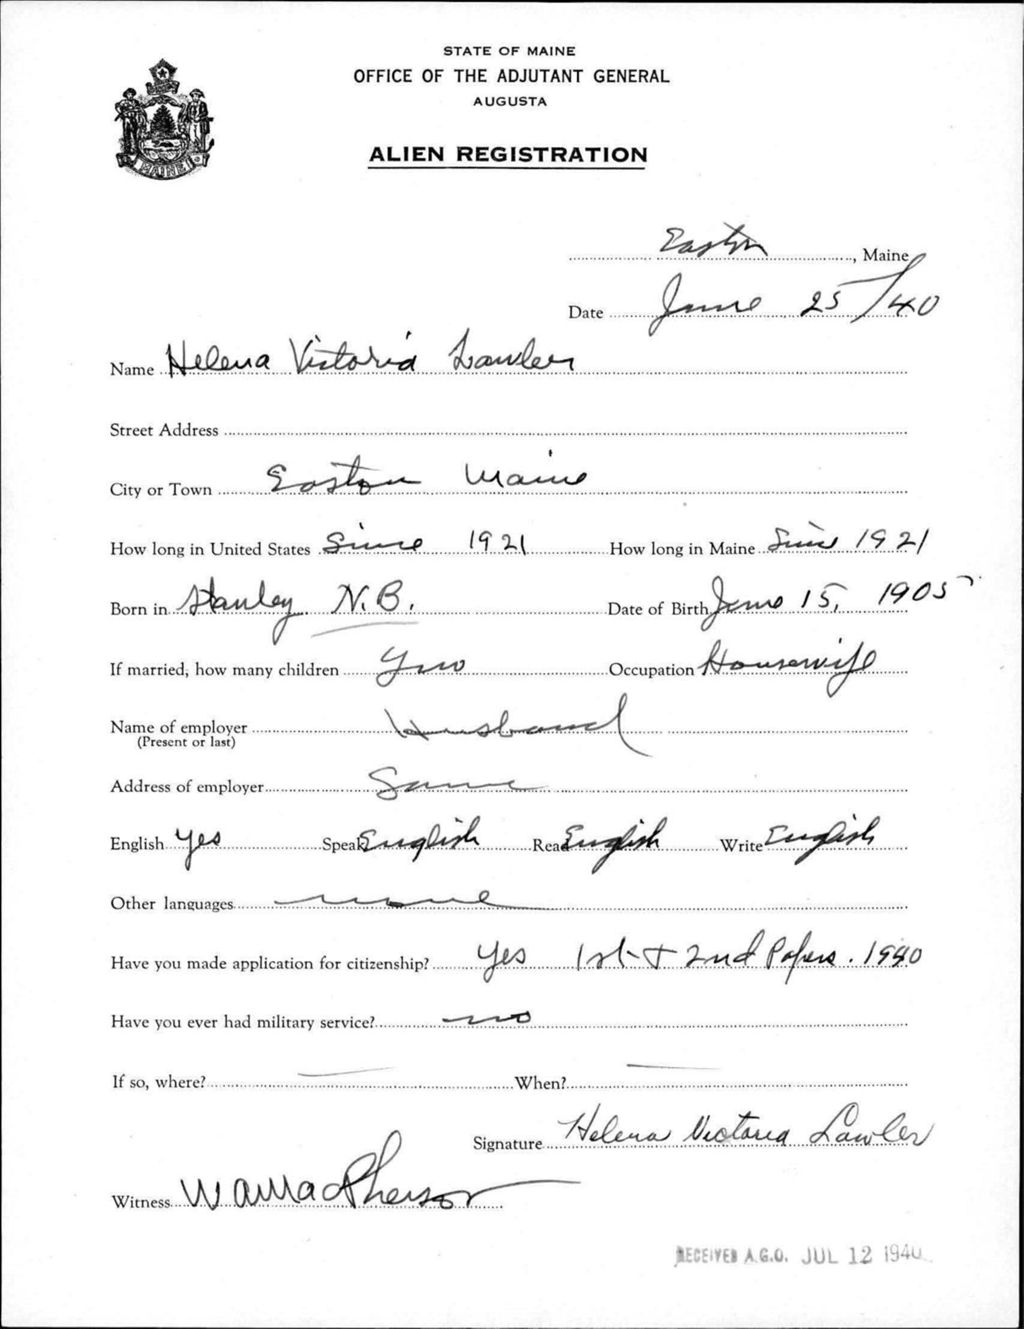 STATE OF MAINE
OFFICE OF THE ADJUTANT GENERAL
AUGUSTA
ALIEN REGISTRATION
MAINE
Easton, Maine
Date June 25/40
Name Helena Victoria Lawler
Street Address
City or Town Easton Maine
How long in United States Since 1921 How long in Maine Since 1921
Born in Stanley N.B. Date of Birth June 15, 1905
If married, how many children Occupation Housewife
Name of employer Husband
(Present or last)
Address of employer Same
English Yes Speak English Read English Write English
Other languages none
Have you made application for citizenship? Yes 1st + 2nd Papers. 1940
Have you ever had military service? no
If so, where? — When? —
Signature Helena Victoria Lawler
Witness
RECEIVED A.G.O. JUL 12 1940